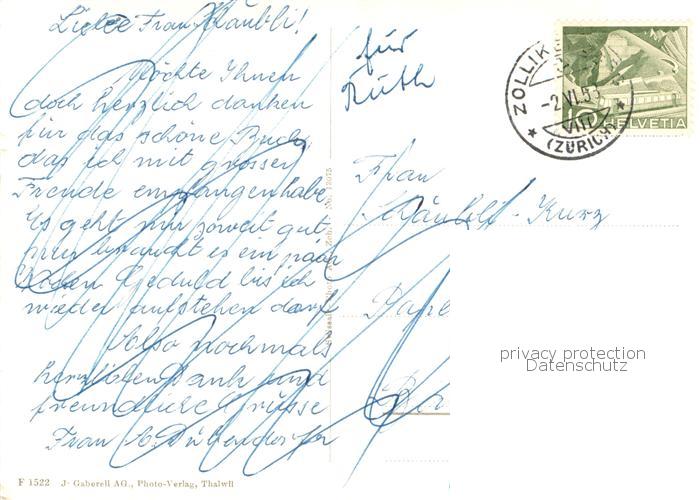 Liebe Frau Kräubli!
Möchte Ihnen
doch herzlich danken
für das schöne Buch,
das ich mit grosser
Freude empfangen habe.
Es geht mir soweit gut,
nur braucht es ein paar
Wochen Geduld bis ich
wieder aufstehen darf.
Also nochmals
herzlichen Dank und
freundliche Grüsse
Frau A. Dübendorfer
für
Ruth
Frau
-Kurz
ZOLLIK
-2.VI.53
VIII
(ZÜRICH)
HELVETIA
privacy protection
Datenschutz
F 1522 J. Gaberell AG., Photo-Verlag, Thalwil